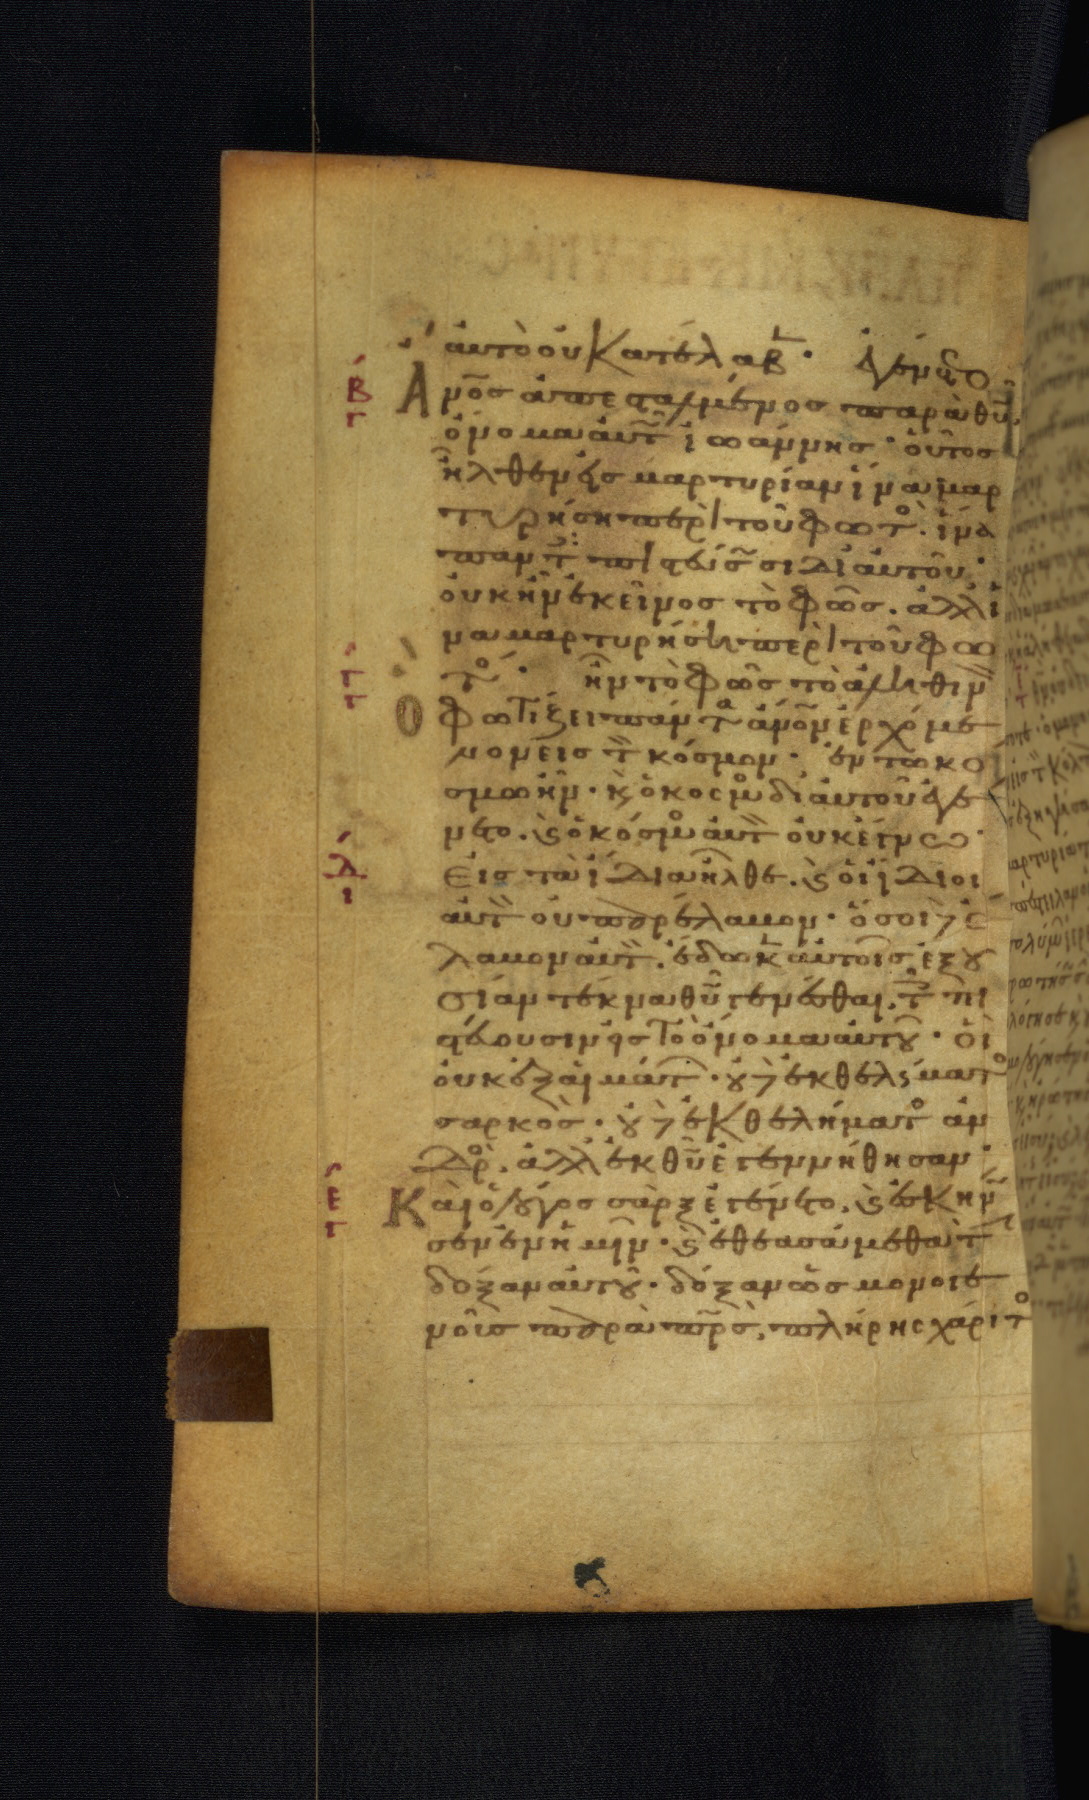 αὐτὸ οὐ κατέλαβ· ἐγένετο
β
γ
ἀνο̅ς ἀπεσταλμένος παρὰ θυ̅,
ὄνομα αὐτ ἰωάννης· οὗτος
ἦλθεν εἰς μαρτυρίαν ἵνα μαρ
τυρήση περὶ τοῦ φωτο. ἵνα
παντ πιστεύσωσι δι αὐτοῦ·
οὐκ ἦν ἐκεῖνος τὸ φῶς. ἀλλ ἵ
να μαρτυρήση περὶ τοῦ φω
γ
γ
το· ἦν τὸ φῶς τὸ ἀληθιν
ὃ φωτίζει παντα ἀνο̅ν ἐρχόμε
νον εἰς τ κόσμον· ἐν τῶ κο
σμω ἦν· κ ὁ κοσμο δι αὐτοῦ ἐγέ
νετο. κ ὁ κόσμο αὐτ οὐκ ἔγνω·
δ
ι
Εἰς τὰ ἴδια ἦλθε. κ οἱ ἴδιοι
αὐτ οὐ παρέλαβον· ὅσοι δὲ ἔ
λαβον αὐτ. ἔδωκ αὐτοῖς ἐξου
σίαν τέκνα θυ̅ γενέσθαι, τ πι
στεύουσιν εἰς τὸ ὄνομα αὐτου· οἳ
οὐκ ἐξ αἱμάτ· οὐδὲ ἐκ θελήματο
σαρκὸς· οὐδὲ ἐκ θελήματο ἀν
δρο. ἀλλ ἐκ θυ̅ ἐγεννήθησαν·
ε
γ
Καὶ ὁ λόγος σὰρξ ἐγένετο, κ ἐσκήν
σεν ἐν ἡμῖν· κ ἐθεασάμεθα τ
δόξαν αὐτου· δόξαν ὡς μονογε
νοῦς παρὰ πρ̅ς, πλήρης χάριτο